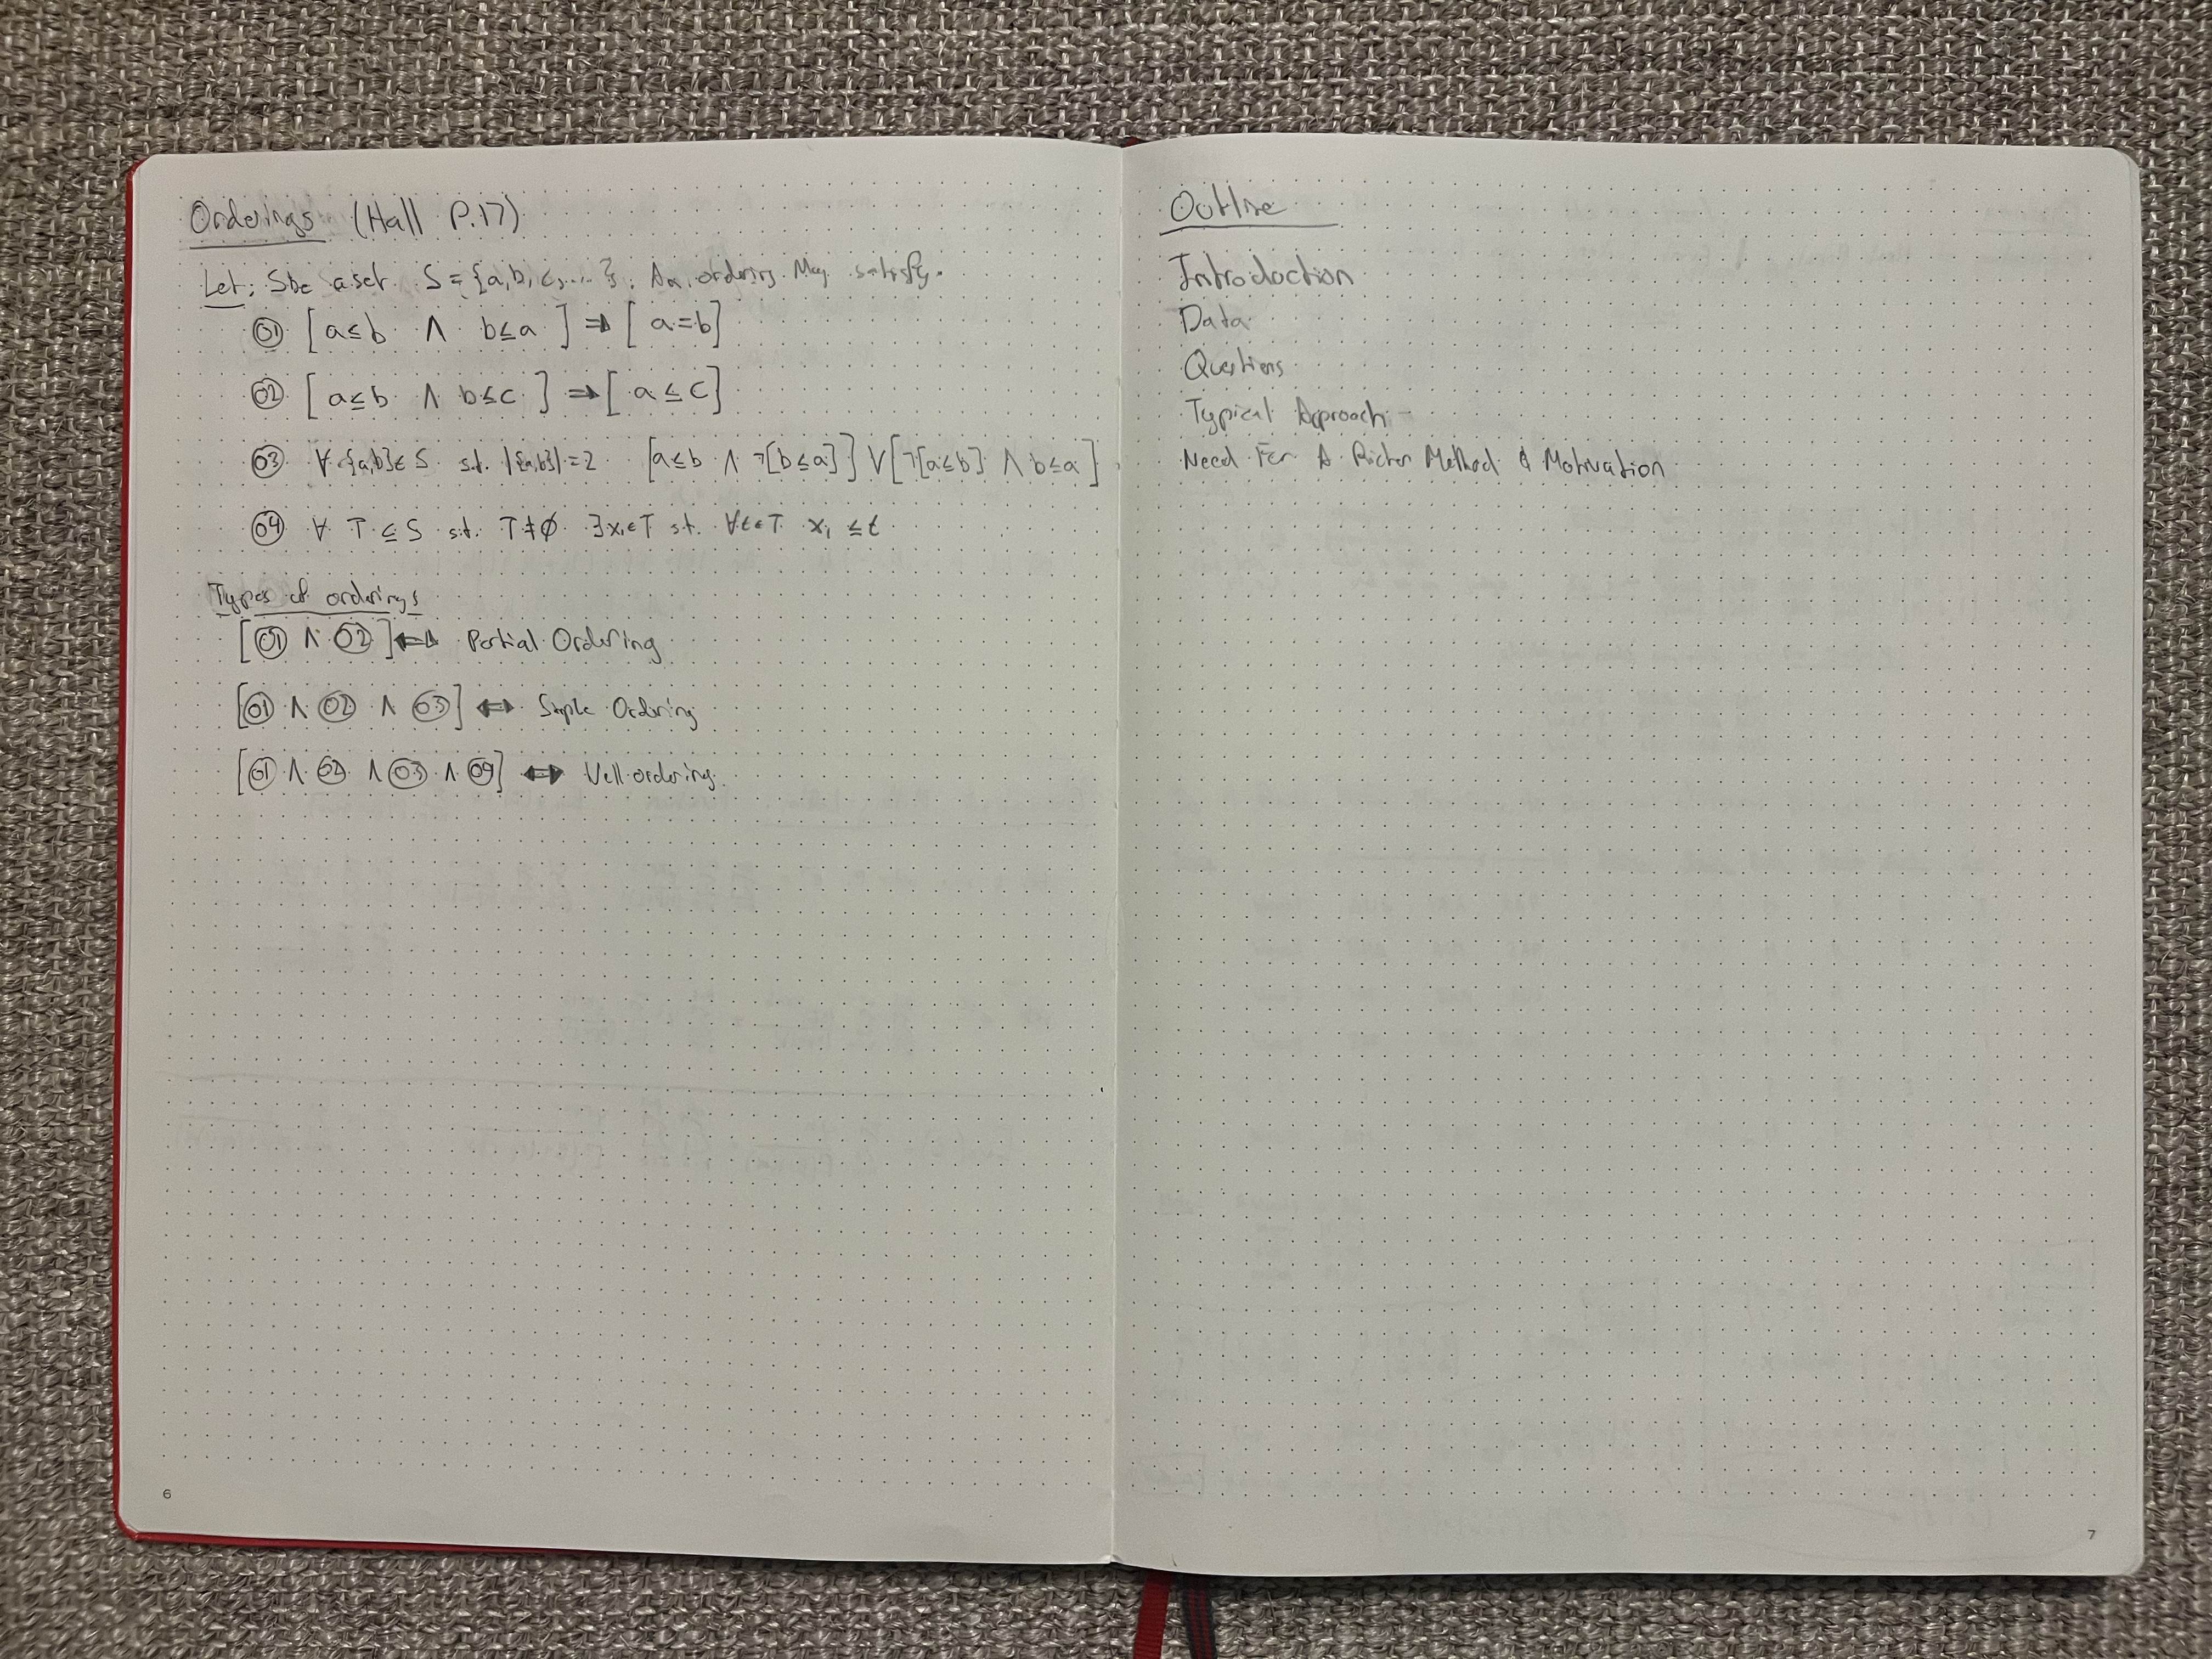 Orderings (Hall P.17)
Let: S be a set S = {a, b, c, ...}. An ordering may satisfy.
(O1) [a ≤ b ∧ b ≤ a] ⇒ [a = b]
(O2) [a ≤ b ∧ b ≤ c] ⇒ [a ≤ c]
(O3) ∀{a,b} ∈ S s.t. |{a,b}| = 2 [a ≤ b ∧ ¬[b ≤ a]] ∨ [¬[a ≤ b] ∧ b ≤ a]
(O4) ∀ T ⊆ S s.t. T ≠ ∅ ∃x₁ ∈ T st. ∀t ∈ T x₁ ≤ t
Types of orderings
[(O1) ∧ (O2)] ⇔ Partial Ordering
[(O1) ∧ (O2) ∧ (O3)] ⇔ Simple Ordering
[(O1) ∧ (O2) ∧ (O3) ∧ (O4)] ⇔ Well-ordering.
6
Outline
Introduction
Data
Questions
Typical Approach -
Need For A Richer Method & Motivation
7